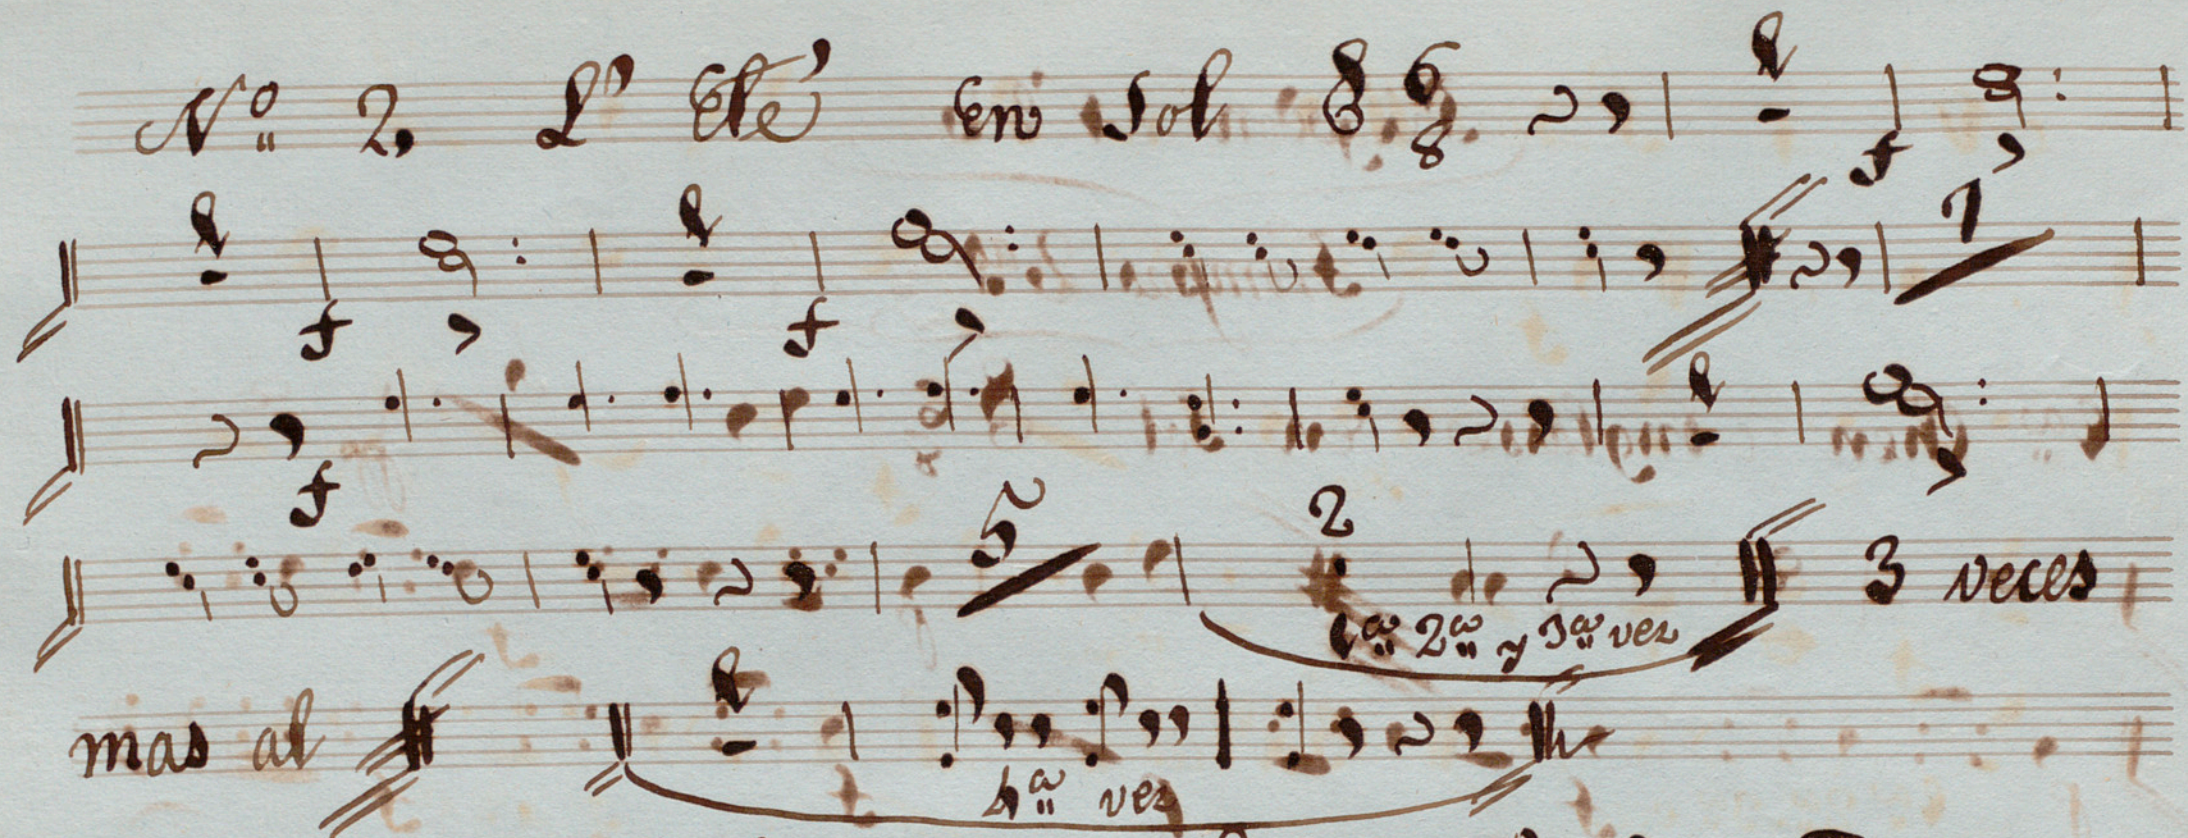 Nº 2, L' Eté en Sol 6 8
f
f f 7
f
5 2 3 veces
1ª 2ª y 3ª vez
mas al
4ª vez